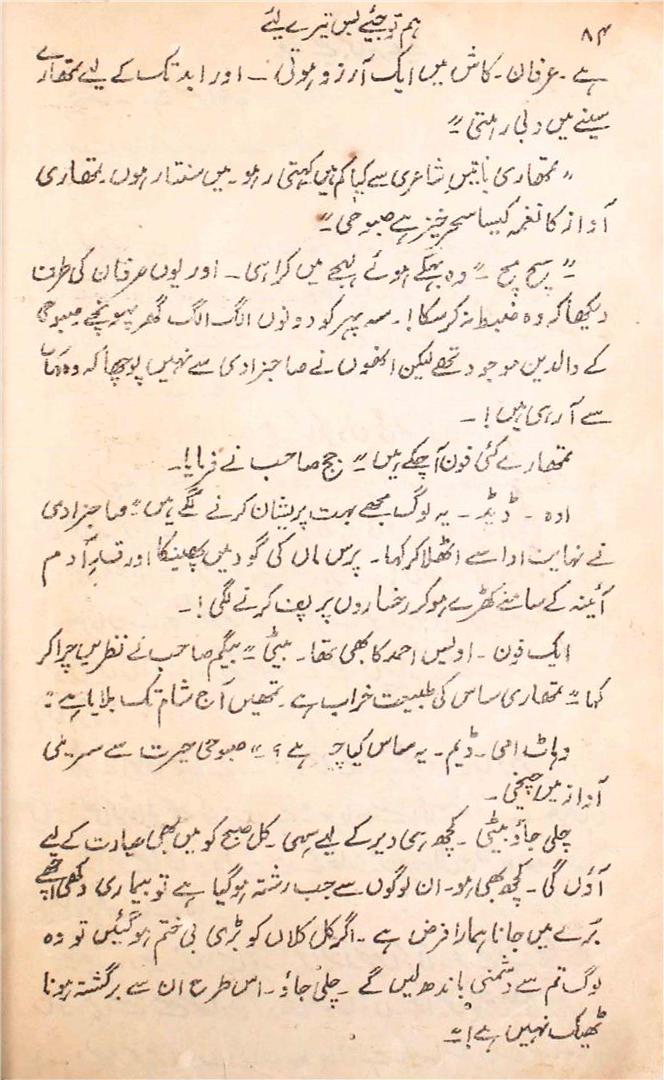 ۸۴
ہم تو جئے بس تیرے لیئے
ہے ۔ عرفان ۔ کاش میں ایک آرزو ہوتی ۔ اور ابد تک کے لیے تمھارے
سینے میں دبی رہتی ۔"
" تمھاری باتیں شاعری سے کیا کم ہیں کہتی رہو ۔ میں سنتا رہوں ۔ تمھاری
آواز کا نغمہ کیسا سحر خیز ہے صبوحی ۔"
" سچ مچ ۔" وہ بہکے ہوئے لہجے میں کراہی ۔ اور یوں عرفان کی طرف
دیکھا کہ وہ ضبط نہ کر سکا ! ۔ سہ پہر کو دونوں الگ الگ گھر پہونچے ۔ صبوحی
کے والدین موجود تھے لیکن انھوں نے صاحبزادی سے نہیں پوچھا کہ وہ کہاں
سے آرہی ہیں ! ۔
تمھارے کئی فون آچکے ہیں ۔" جج صاحب نے فرمایا ۔
اوہ ۔ ڈیڈ ۔ یہ لوگ مجھے بہت پریشان کرنے لگے ہیں ۔" صاحبزادی
نے نہایت ادا سے اٹھلا کر کہا ۔ پرس ماں کی گود میں پھینکا اور قدِ آدم
آئینہ کے سامنے کھڑے ہو کر رخساروں پر پف کرنے لگی ! ۔
ایک فون ۔ اویس احمد کا بھی تھا ۔ بیٹی ۔" بیگم صاحب نے نظریں چرا کر
کہا ۔" تمھاری ساس کی طبیعت خراب ہے ۔ تمھیں آج شام تک بلایا ہے ۔"
وہاٹ امی ۔ ڈیم ۔ یہ ساس کیا چیز ہے ؟ ۔" صبوحی حیرت سے سریلی
آواز میں چیخی ۔
چلی جاؤ بیٹی ۔ کچھ ہی دیر کے لیے سہی ۔ کل صبح کو میں بھی عیادت کے لیے
آؤں گی ۔ کچھ بھی ہو ۔ ان لوگوں سے جب رشتہ ہو گیا ہے تو بیماری دکھی اچھے
بُرے میں جانا ہمارا فرض ہے ۔ اگر کل کلاں کو بڑی بی ختم ہو گئیں تو وہ
لوگ تم سے دشمنی باندھ لیں گے ۔ چلی جاؤ ۔ اس طرح ان سے برگشتہ ہونا
ٹھیک نہیں ہے ! ۔"